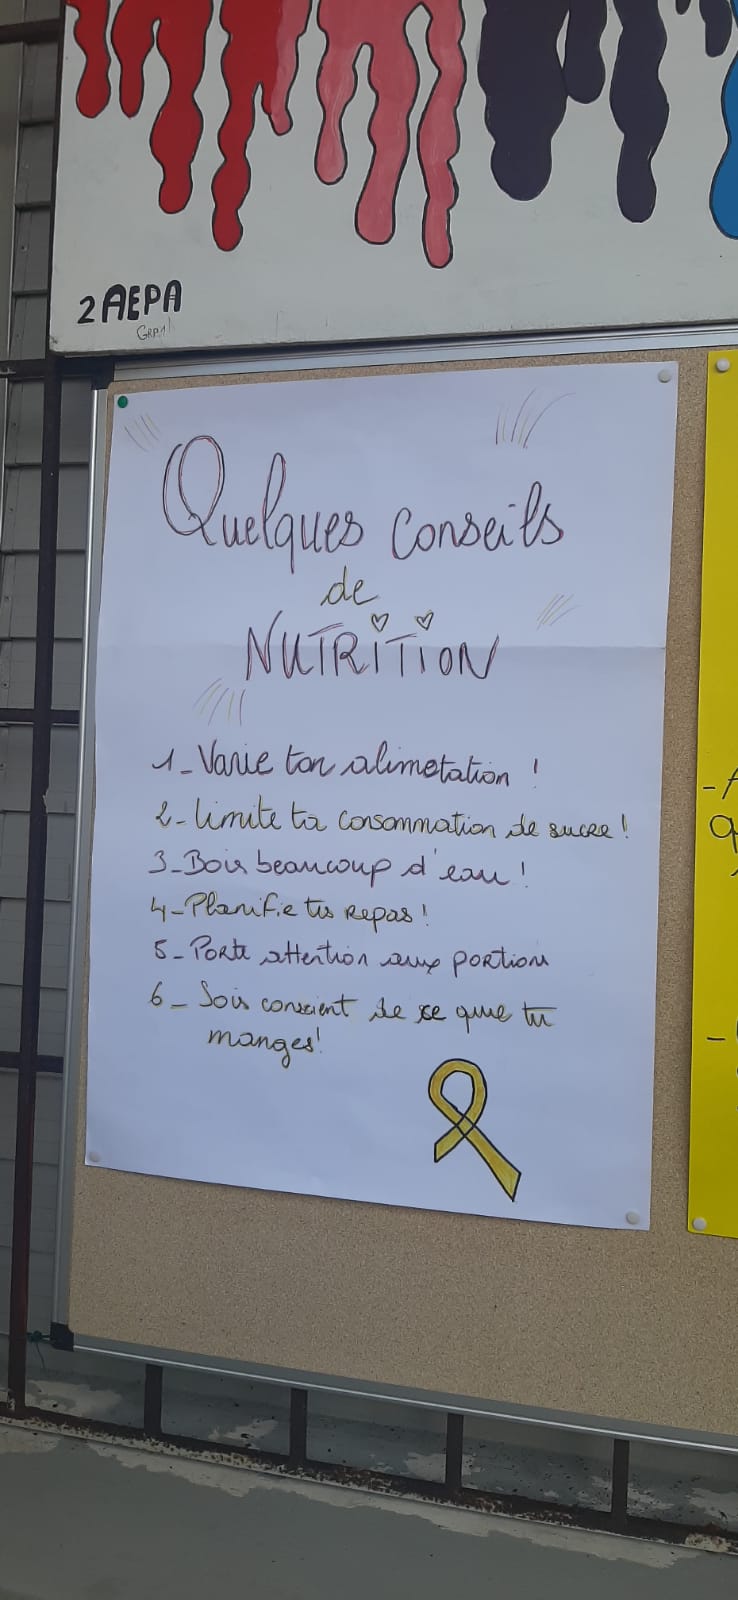 2 AEPA
Quelques conseils
de
NUTRITION
1_ Varie ton alimetation !
2_ Limite ta consommation de sucre !
3_ Bois beaucoup d'eau !
4_ Planifie tes repas !
5_ Porte attention aux portions
6_ Sois conscient de ce que tu
manges !